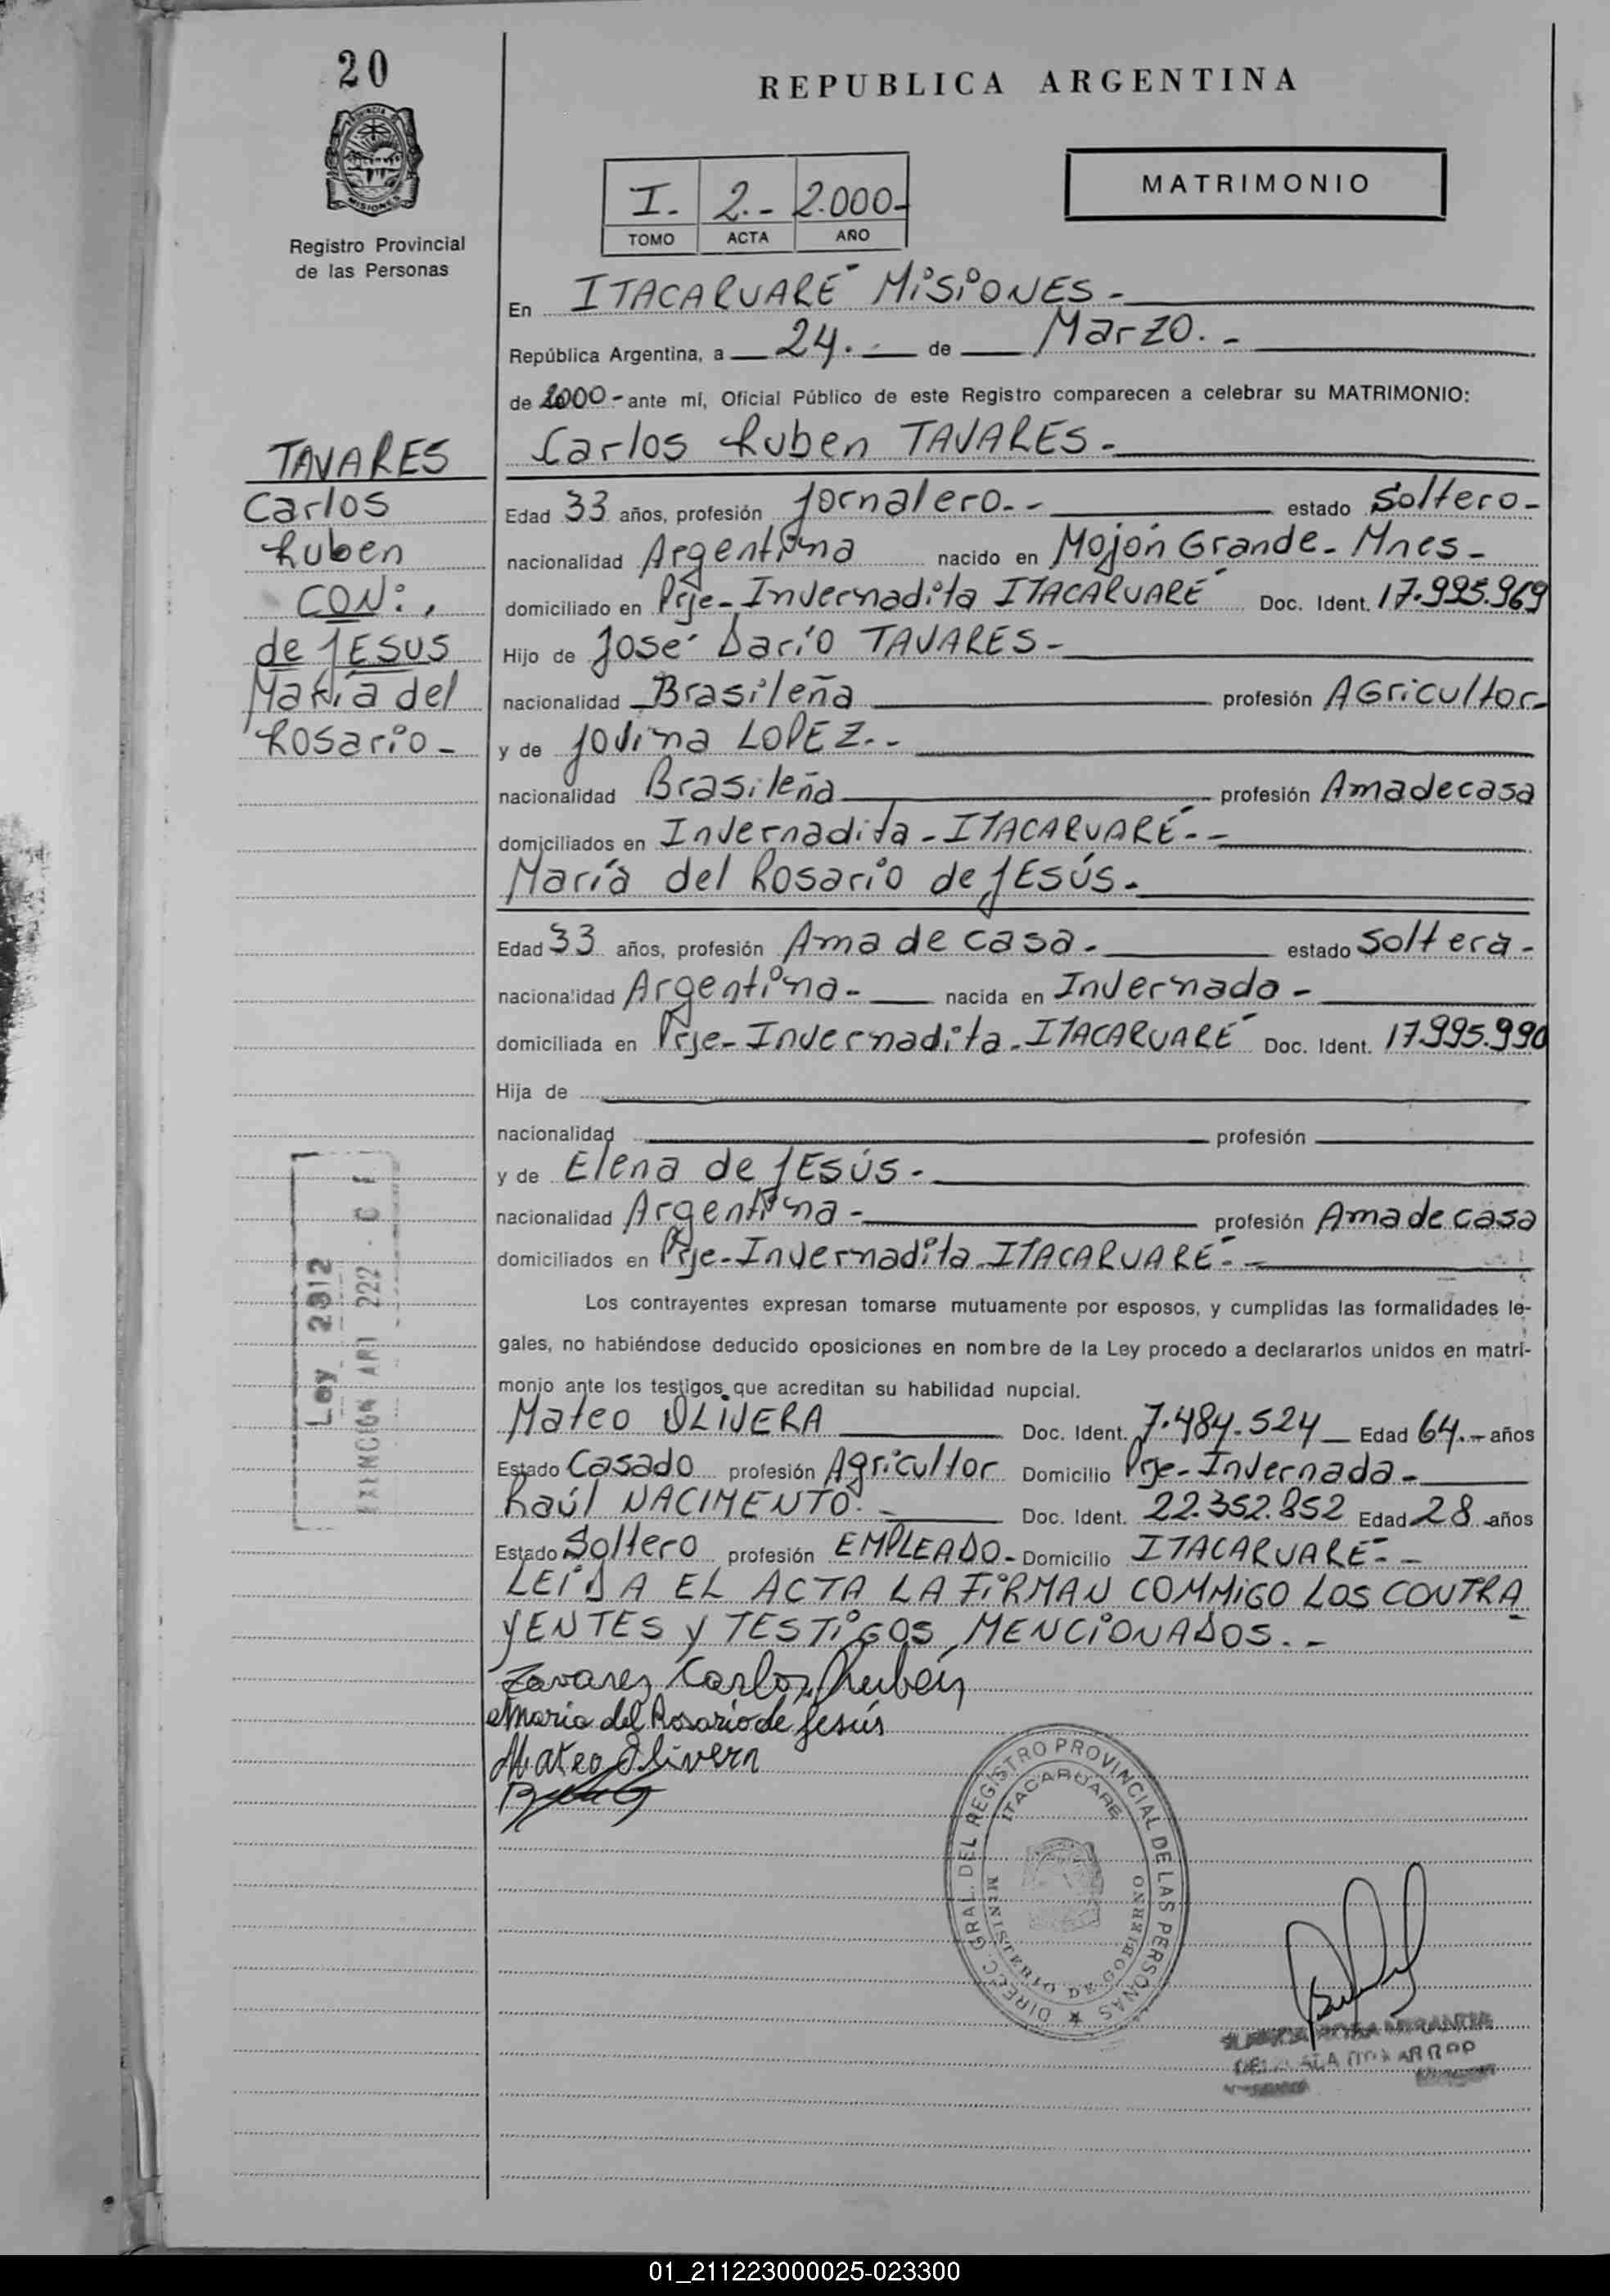 20
REPUBLICA ARGENTINA
PROVINCIA DE
MISIONES
Registro Provincial
de las Personas
I.- 2.- 2.000-
TOMO ACTA AÑO
MATRIMONIO
En ITACARUARÉ MISIONES-
República Argentina, a 24.- de Marzo.-
de 2000- ante mí, Oficial Público de este Registro comparecen a celebrar su MATRIMONIO:
Carlos Ruben TAVARES-
TAVARES
Carlos
Ruben
CON:
de JESUS
María del
Rosario-
Edad 33 años, profesión Jornalero.-- estado Soltero-
nacionalidad Argentina nacido en Mojón Grande- Mnes-
domiciliado en Prje- Invernadita ITACARUARÉ Doc. Ident. 17.995.969
Hijo de José Darío TAVARES-
nacionalidad Brasileña profesión AGricultor-
y de Jovina LOPEZ.-
nacionalidad Brasileña profesión Amadecasa
domiciliados en Invernadita-ITACARUARÉ--
María del Rosario de JESÚS-
Edad 33 años, profesión Ama de casa- estado Soltera-
nacionalidad Argentina- nacida en Invernada-
domiciliada en Prje-Invernadita-ITACARUARÉ Doc. Ident. 17.995.990
Hija de
nacionalidad profesión
y de Elena de JESÚS-
nacionalidad Argentina- profesión Ama de casa
domiciliados en Prje-Invernadita-ITACARUARÉ--
Los contrayentes expresan tomarse mutuamente por esposos, y cumplidas las formalidades le-
gales, no habiéndose deducido oposiciones en nombre de la Ley procedo a declararlos unidos en matri-
monio ante los testigos que acreditan su habilidad nupcial.
Mateo OLIVERA Doc. Ident. 7.484.524 Edad 64.- años
Estado Casado profesión Agricultor Domicilio Prje-Invernada-
Raúl NACIMENTO.- Doc. Ident. 22.352.852 Edad 28 años
Estado Soltero profesión EMPLEADO- Domicilio ITACARUARÉ--
LEIDA EL ACTA LA FIRMAN COMMIGO LOS CONTRA
YENTES y TESTIGOS MENCIONADOS.-
Tavares Carlos Rubén
Maria del Rosario de Jesús
Mateo Olivera
Ley 2312
EXENCION ART 222
DIRECC. GRAL. DEL REGISTRO PROVINCIAL DE LAS PERSONAS
ITACARUARE
MINISTERIO DE GOBIERNO
ROSA MIRANDA
01_211223000025-023300